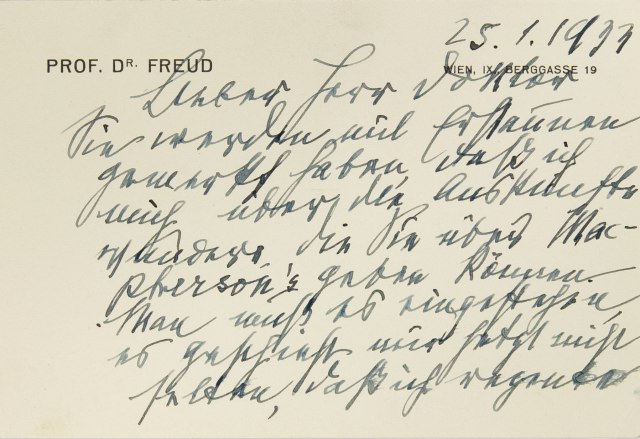 25.1.1933
PROF. DR. FREUD
WIEN, IX., BERGGASSE 19
Lieber Herr Doktor
Sie werden mit Erstaunen
gemerkt haben, daß ich
mich über die Auskünfte
wundere, die Sie über Mac-
pherson's geben können.
Man muß es eingestehen,
es geschieht mir jetzt nicht
selten, daß ich